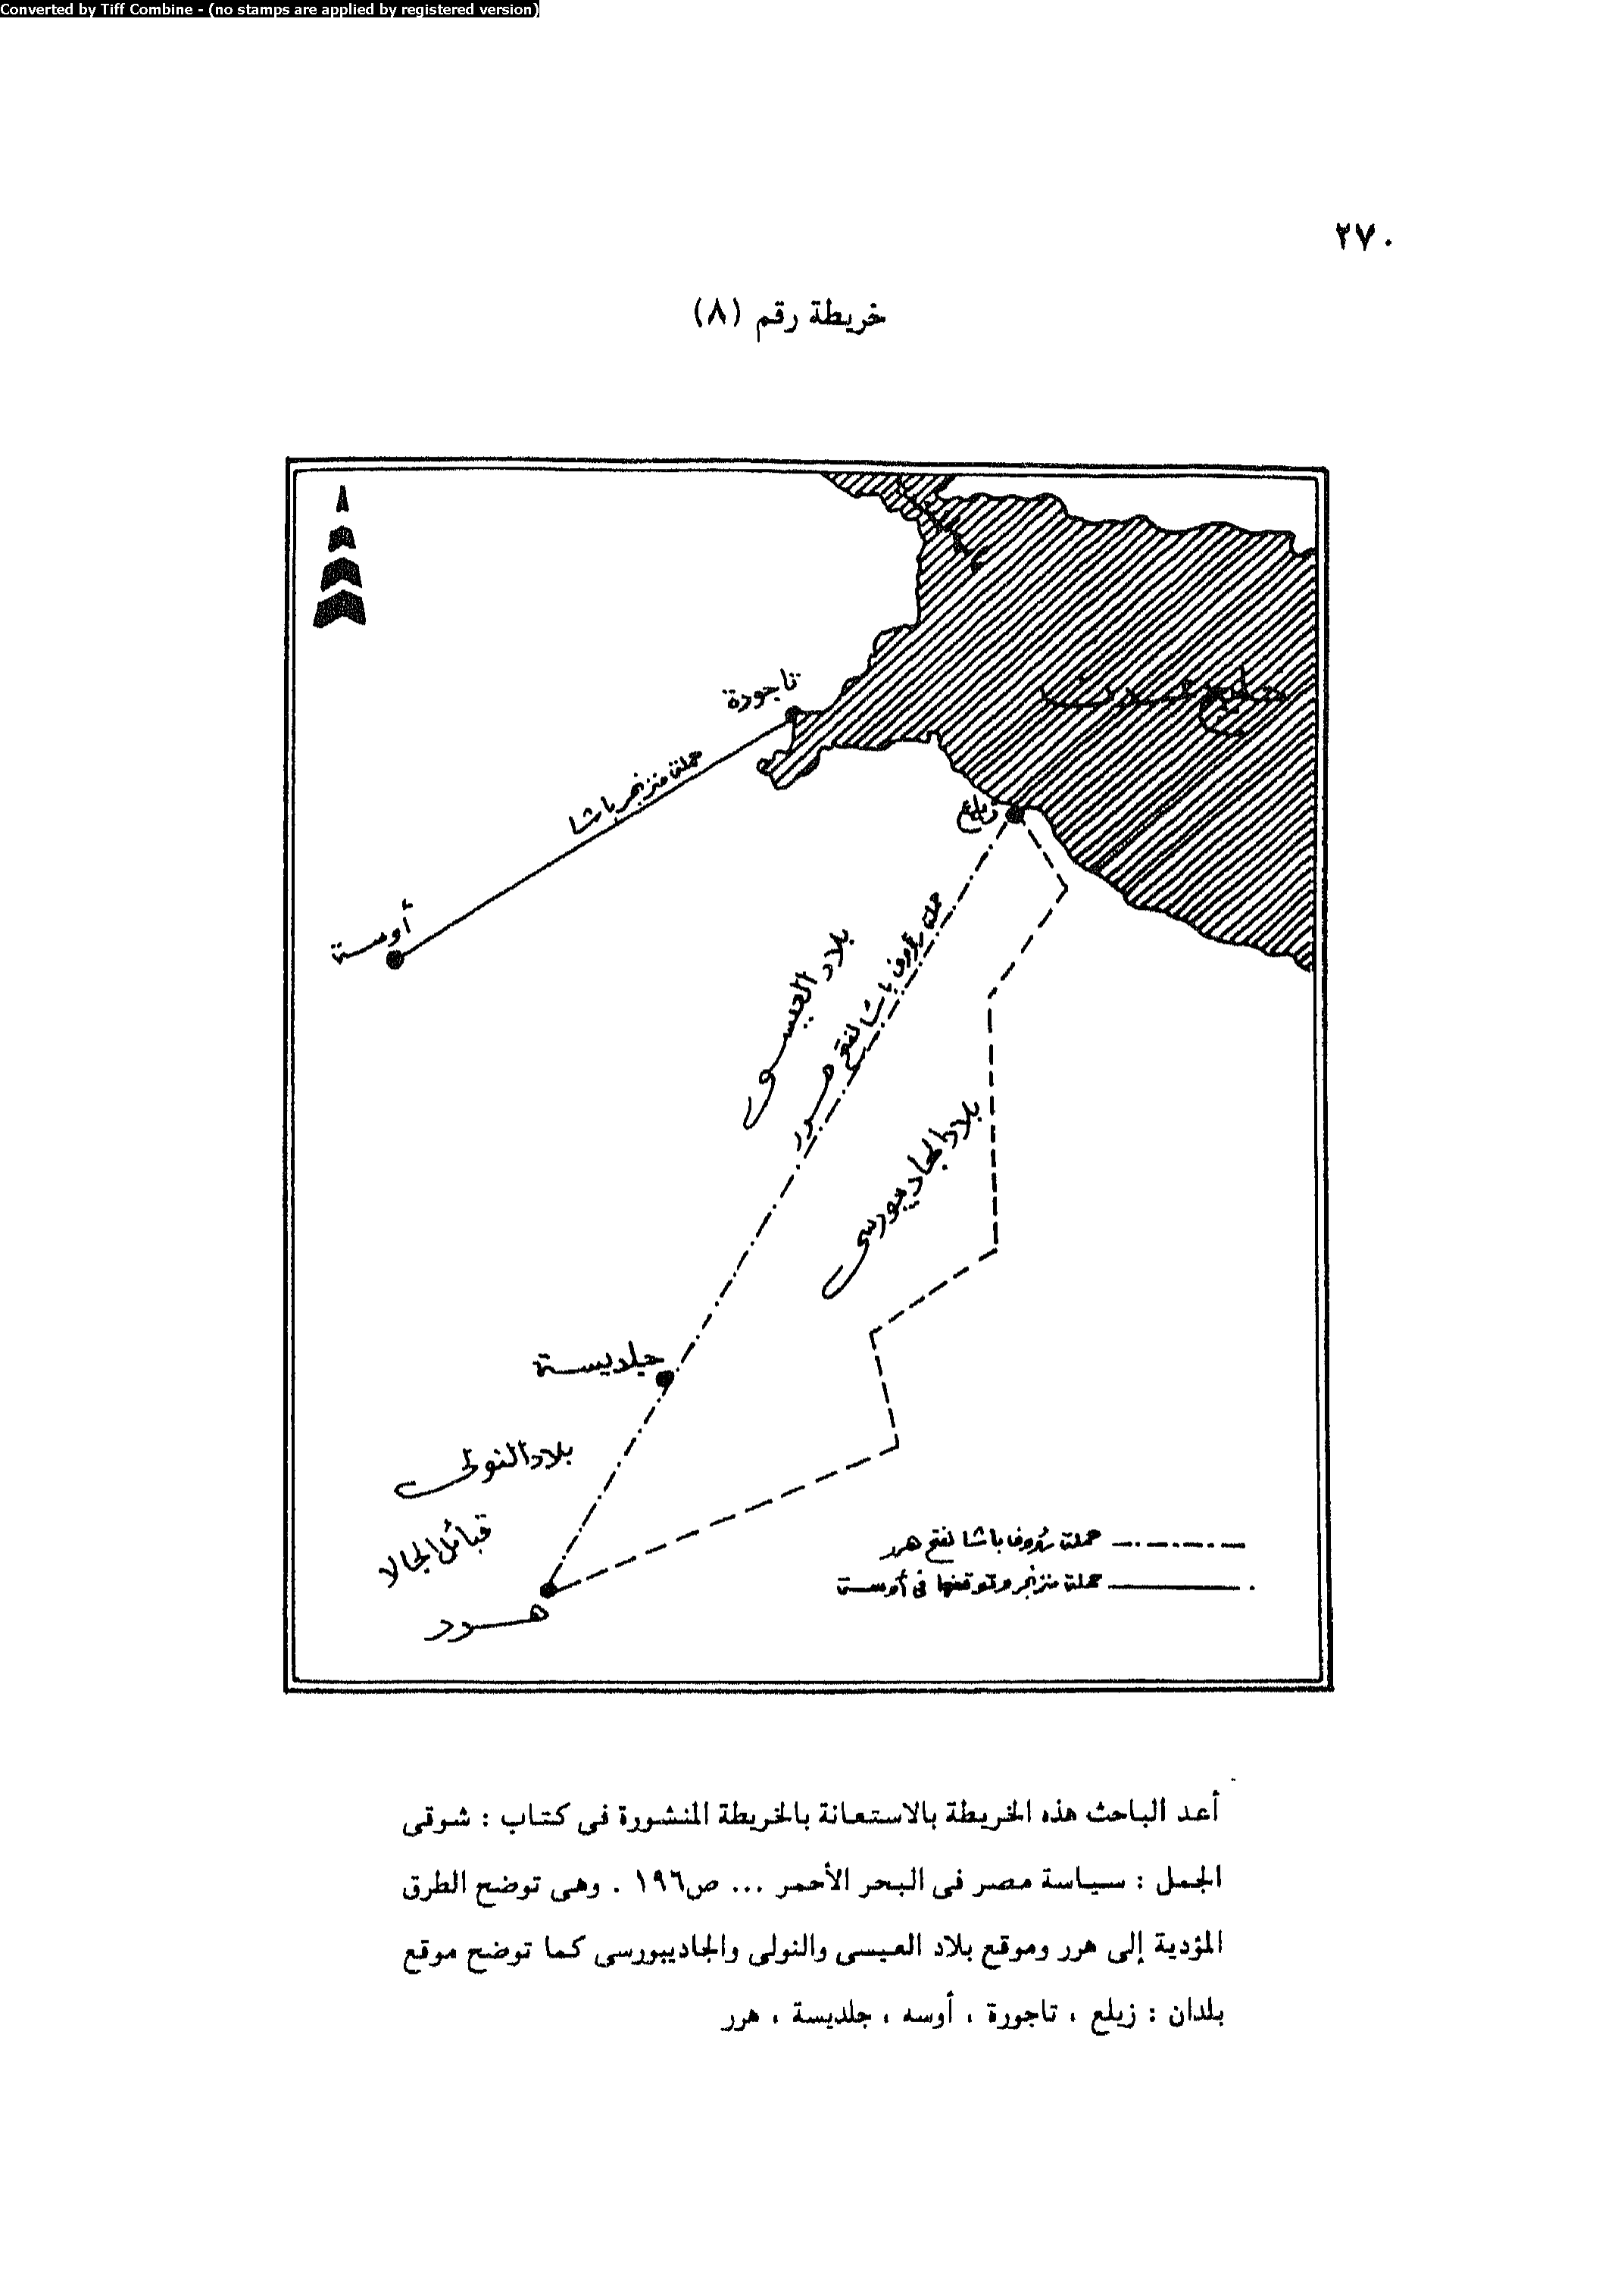 Converted by Tiff Combine - (no stamps are applied by registered version)
٢٧٠
خريطة رقم (٨)
تاجورة
حملة منزنجر باشا
أوسة
خليج عدن
زيلع
حملة رؤوف باشا لفتح هرر
بلاد العيسى
بلاد الجاديبورسى
جلديسة
بلاد النولى
قبائل الجالا
هرر
حملة رؤوف باشا لفتح هرر
حملة منزنجر وتوقفها فى أوسة
أعد الباحث هذه الخريطة بالاستعانة بالخريطة المنشورة فى كتاب : شوقى
الجمل : سياسة مصر فى البحر الأحمر ... ص١٩٦ . وهى توضح الطرق
المؤدية إلى هرر وموقع بلاد العيسى والنولى والجاديبورسى كما توضح موقع
بلدان : زيلع ، تاجورة ، أوسه ، جلديسة ، هرر